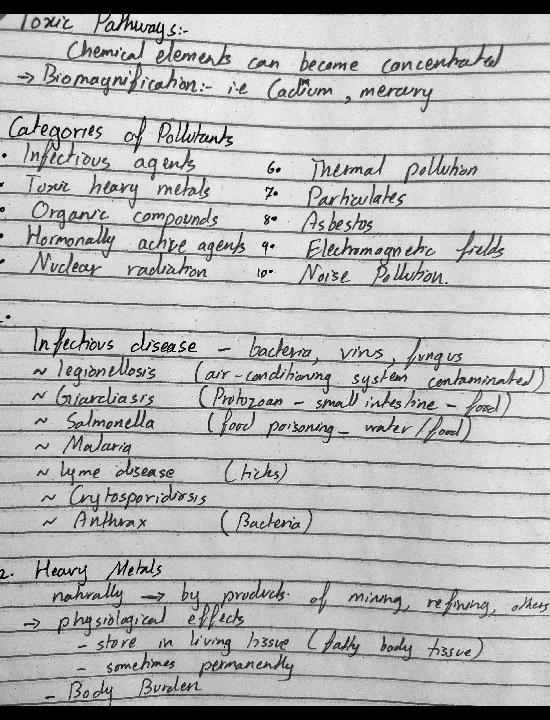 Toxic Pathways:-
Chemical elements can become concentrated
→ Biomagnification:- i.e Cadium, mercury
Categories of Pollutants
• Infectious agents 6. Thermal pollution
• Toxic heavy metals 7. Particulates
• Organic compounds 8. Asbestos
• Hormonally active agents 9. Electromagnetic fields
• Nuclear radiation 10. Noise Pollution.
Infectious disease - bacteria, virus, fungus
~ legionellosis (air-conditioning system contaminated)
~ Giardiasis (Protozoan - small intestine - food)
~ Salmonella (food poisoning - water/food)
~ Malaria
~ Lyme disease (ticks)
~ Crytosporidiosis
~ Anthrax (Bacteria)
2. Heavy Metals
naturally → by products of mining, refining, others
→ physiological effects
- store in living tissue (fatty body tissue)
- sometimes permanently
- Body Burden